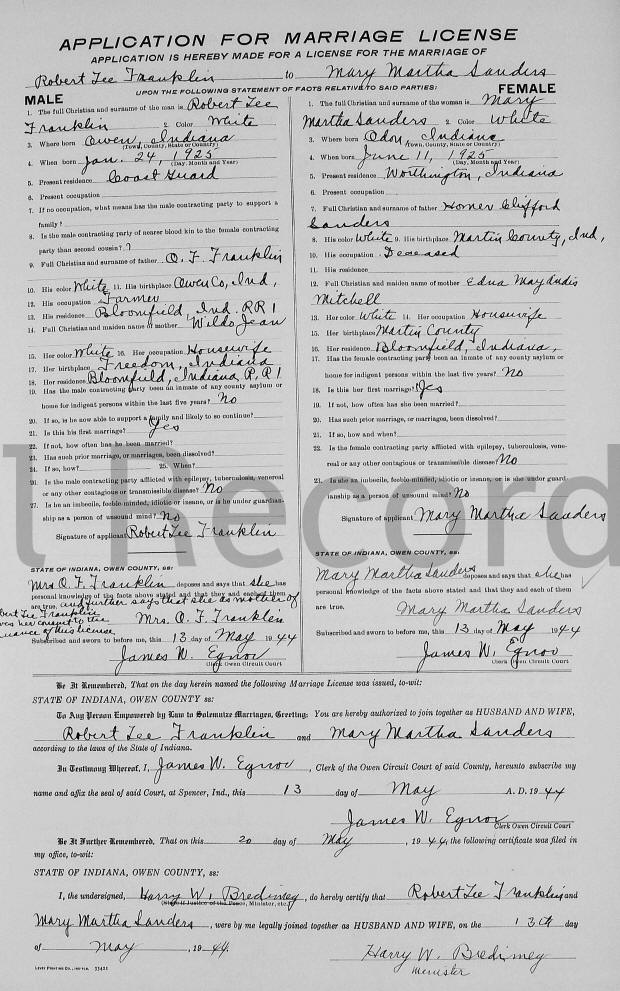 APPLICATION FOR MARRIAGE LICENSE
APPLICATION IS HEREBY MADE FOR A LICENSE FOR THE MARRIAGE OF
Robert Lee Franklin to Mary Martha Sanders
UPON THE FOLLOWING STATEMENT OF FACTS RELATIVE TO SAID PARTIES:
MALE
1. The full Christian and surname of the man is Robert Lee
Franklin 2. Color White
3. Where born Owen, Indiana
(Town, County, State or Country)
4. When born Jan. 24, 1925
(Day, Month and Year)
5. Present residence Coast Guard
6. Present occupation
7. If no occupation, what means has the male contracting party to support a
family?
8. Is the male contracting party of nearer blood kin to the female contracting
party than second cousin? ?
9. Full Christian and surname of father O. F. Franklin
10. His color White 11. His birthplace Owen Co, Ind,
12. His occupation Farmer
13. His residence Bloomfield, Ind. RR 1
14. Full Christian and maiden name of mother Wilds Jean
15. Her color White 16. Her occupation Housewife
17. Her birthplace Freedom, Indiana
18. Her residence Bloomfield, Indiana, R, R 1
19. Has the male contracting party been an inmate of any county asylum or
home for indigent persons within the last five years? No
20. If so, is he now able to support a family and likely to so continue?
21. Is this his first marriage? Yes
22. If not, how often has he been married?
23. Has such prior marriage, or marriages, been dissolved?
24. If so, how? 25. When?
26. Is the male contracting party afflicted with epilepsy, tuberculosis, venereal
or any other contagious or transmissible disease? No
27. Is he an imbecile, feeble-minded, idiotic or insane, or is he under guardian-
ship as a person of unsound mind? No
Signature of applicant Robert Lee Franklin
STATE OF INDIANA, OWEN COUNTY, ss:
Mrs O. F. Franklin deposes and says that she has
personal knowledge of the facts above stated and that they and each of them
are true, and further says that she as mother of
Lee Franklin
her consent to the
of this license
Mrs. O. F. Franklin
Subscribed and sworn to before me, this 13 day of May 1944
James W. Egnor
Clerk Owen Circuit Court
FEMALE
1. The full Christian and surname of the woman is Mary
Martha Sanders 2. Color White
3. Where born Odon, Indiana
(Town, County, State or Country)
4. When born June 11, 1925
(Day, Month and Year)
5. Present residence Worthington, Indiana
6. Present occupation
7. Full Christian and surname of father Homer Clifford
Sanders
8. His color White 9. His birthplace Martin County, Ind,
10. His occupation Deceased
11. His residence
12. Full Christian and maiden name of mother Edna May Andis
Mitchell
13. Her color White 14. Her occupation Housewife
15. Her birthplace Martin County
16. Her residence Bloomfield, Indiana,
17. Has the female contracting party been an inmate of any county asylum or
home for indigent persons within the last five years? No
18. Is this her first marriage? Yes
19. If not, how often has she been married?
20. Has such prior marriage, or marriages, been dissolved?
21. If so, how and when?
22. Is the female contracting party afflicted with epilepsy, tuberculosis, vene-
real or any other contagious or transmissible disease? No
23. Is she an imbecile, feeble-minded, idiotic or insane, or is she under guard-
ianship as a person of unsound mind? No
Signature of applicant Mary Martha Sanders
STATE OF INDIANA, OWEN COUNTY, ss:
Mary Martha Sanders deposes and says that she has
personal knowledge of the facts above stated and that they and each of them
are true. Mary Martha Sanders
Subscribed and sworn to before me, this 13 day of May 1944
James W. Egnor
Clerk Owen Circuit Court
Be It Remembered, That on the day herein named the following Marriage License was issued, to-wit:
STATE OF INDIANA, OWEN COUNTY ss:
To Any Person Empowered by Law to Solemnize Marriages, Greeting: You are hereby authorized to join together as HUSBAND AND WIFE,
Robert Lee Franklin and Mary Martha Sanders
according to the laws of the State of Indiana.
In Testimony Whereof, I, James W. Egnor, Clerk of the Owen Circuit Court of said County, hereunto subscribe my
name and affix the seal of said Court, at Spencer, Ind., this 13 day of May A. D. 1944
James W. Egnor
Clerk Owen Circuit Court
Be It Further Remembered, That on this 20 day of May, 1944, the following certificate was filed in
my office, to-wit:
STATE OF INDIANA, OWEN COUNTY, ss:
I, the undersigned, Harry W. Bredimey, do hereby certify that Robert Lee Franklin and
(State if Justice of the Peace, Minister, etc.)
Mary Martha Sanders, were by me legally joined together as HUSBAND AND WIFE, on the 13th day
of May, 1944.
Harry W. Bredimey
Minister
l Record